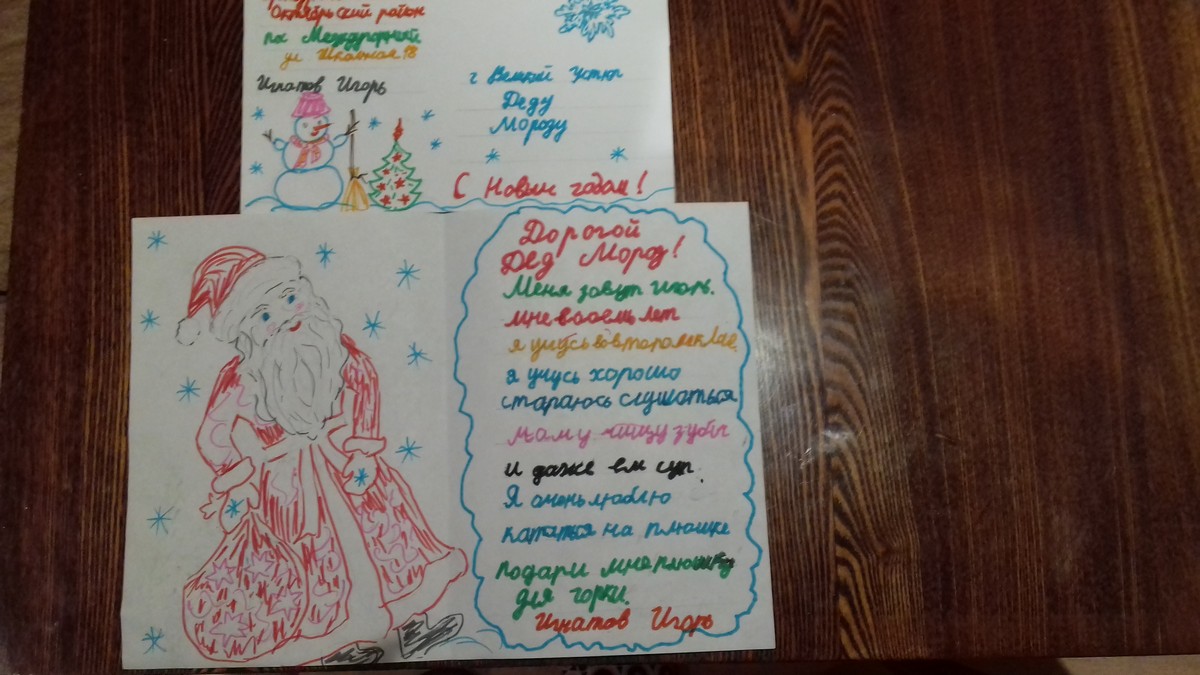 Октябрьский район
пос Международный
ул Школьная 18
Игнатов Игорь
г Великий Устюг
Деду
Морозу
С Новым годом!
Дорогой
Дед Мороз!
Меня зовут Игорь.
мне восемь лет
я учусь во втором клас
я учусь хорошо
стараюсь слушаться
маму чищу зубы
и даже ем суп.
Я очень люблю
кататься на плюшке
подари мне плюшку
для горки.
Игнатов Игорь